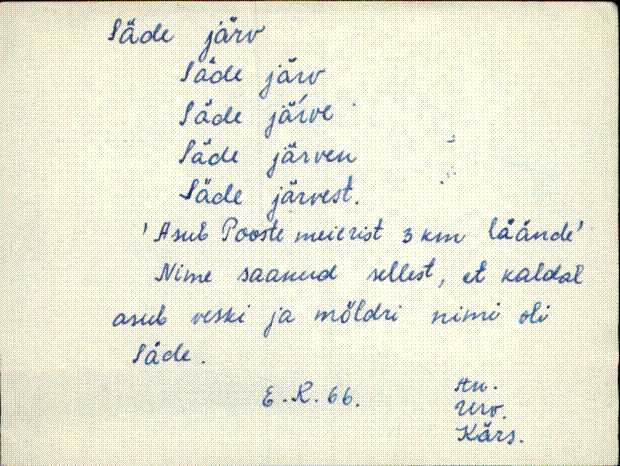 Säde järv
Säde järv
Säde järve
Säde järven
Säde järvest.
'Asub Pooste meierist 3 km läände'
Nime saanud sellest, et kaldal
asub veski ja möldri nimi oli
Säde.
E.R. 66.
An.
Urv.
Kärs.